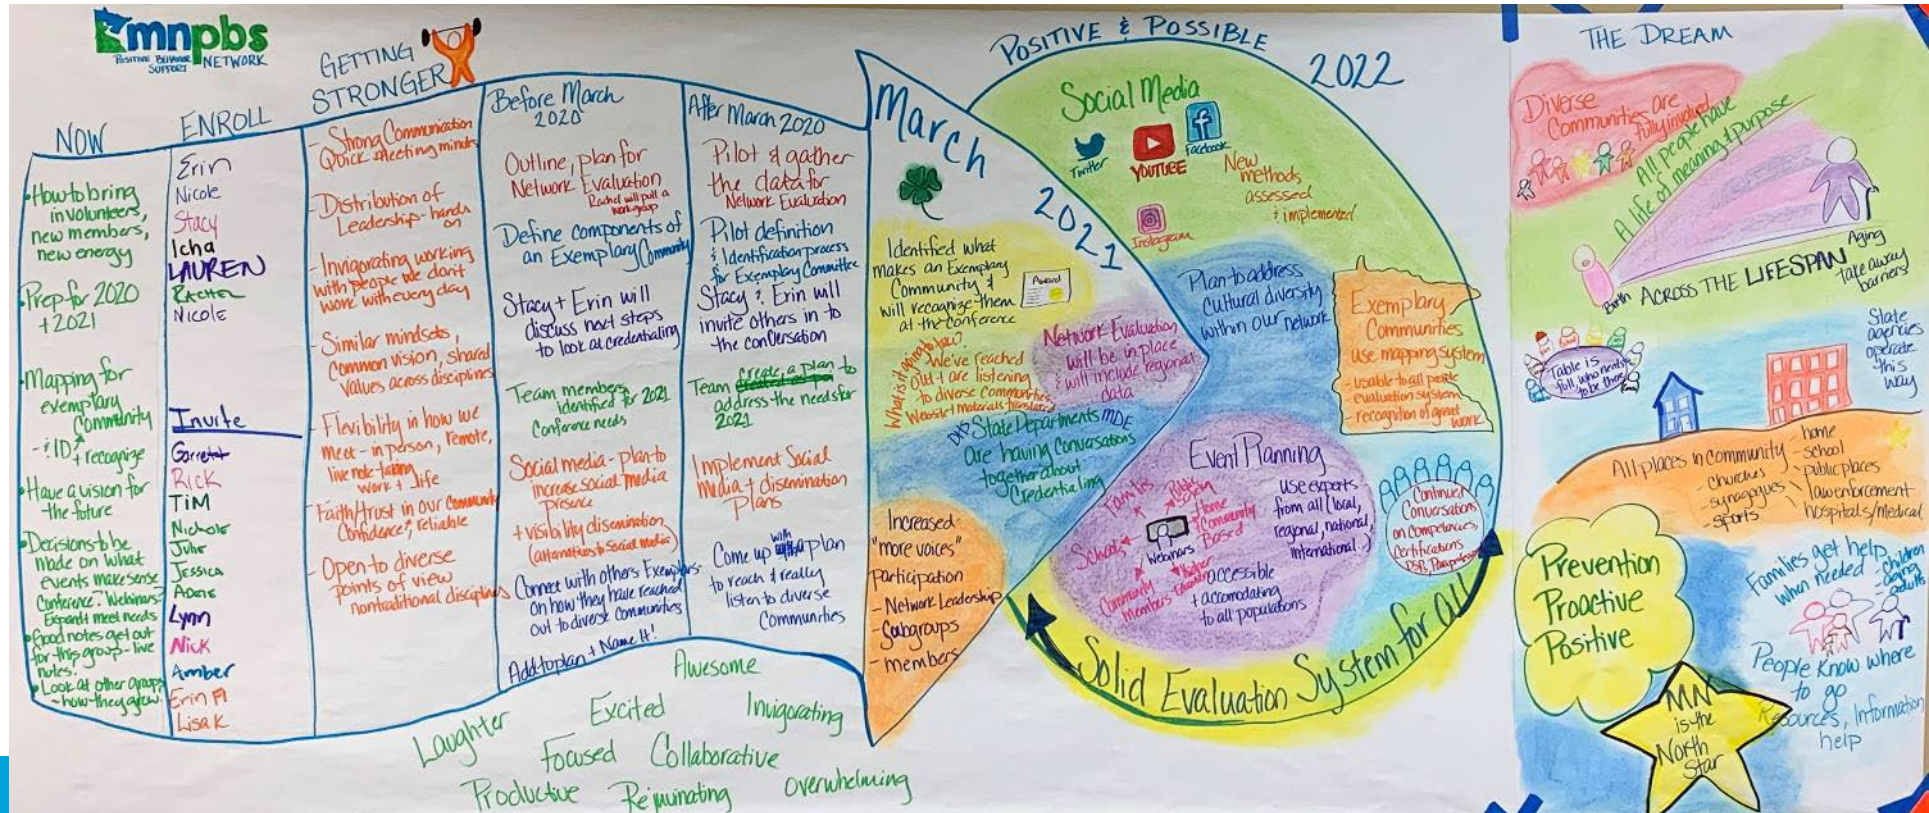 mnpbs
POSITIVE BEHAVIOR
SUPPORT
NETWORK
NOW
How to bring
in volunteers,
new members,
new energy
Prep for 2020
+ 2021
Mapping for
exemplary
Community
- ID
+ recognize
Have a vision for
the future
Decisions to be
made on what
events make sense
Conference - Webinars -
Expand + meet needs
Good notes get out
for this group - live
notes.
Look at other groups
- how they grow.
ENROLL
Erin
Nicole
Stacy
Icha
LAUREN
RACHEL
NICOLE
Invite
Garrett
RICK
TIM
Nichole
JESSICA
Lynn
Nick
Amber
Erin Fl
Lisa K
GETTING
STRONGER
- Strong Communication
Quick meeting minutes
- Distribution of
Leadership - hands
on
- Invigorating working
with people we don't
work with every day
- Similar mindsets,
common vision, shared
values across disciplines
- Flexibility in how we
meet - in person, remote,
live note-taking
work + life
- Faith/trust in our community
Confidence, reliable
- Open to diverse
points of view
nontraditional disciplines
Before March
2020
Outline, plan for
Network Evaluation
Rachel will pull a
workgroup
Define components of
an Exemplary Community
Stacy + Erin will
discuss next steps
to look at credentialing
Team members
identified for 2021
Conference needs
Social media - plan to
increase social media
presence
+ visibility disemination
(alternatives to social media)
Connect with others Exemplars
on how they have reached
out to diverse communities
Add to plan + Name It!
After March 2020
Pilot & gather
the data for
Network Evaluation
Pilot definition
& Identification process
for Exemplary Committee
Stacy & Erin will
invite others in to
the conversation
Team create a plan to
address the needs for
2021
Implement Social
Media + disemination
Plans
Come up with a plan
to reach & really
listen to diverse
Communities
Awesome
Laughter
Excited
Invigorating
Focused
Collaborative
Productive
Rejuinating
overwhelming
March
2021
Identified what
makes an Exemplary
Community &
will recognize them
at the conference
Award
Network Evaluation
will be in place
& will include regional
data
What is it going to take?
We've reached
out + are listening
to diverse communities,
Website + materials translated
DHS State Departments MDE
are having conversations
together about
Credentialing
Increased
"more voices"
Participation
- Network Leadership
- Subgroups
- members
POSITIVE & POSSIBLE
2022
Social Media
Twitter
YOUTUBE
Facebook
Instagram
New
methods
assessed
& implemented
Plan to address
Cultural diversity
within our network
Exemplary
Communities
use mapping system
- usable to all people
evaluation system
- recognition of great
work
Event Planning
Families
Public
Safety
Home
Community
Based
Schools
Webinars
Community
Members
Higher
Education
use experts
from all (local,
regional, national,
international..)
accessible
+ accomodating
to all populations
Continued
Conversations
on competencies,
Certifications
Solid Evaluation System for all
THE DREAM
Diverse
Communities are
fully involved
All people have
A life of meaning & purpose
Aging
Birth
ACROSS THE LIFESPAN
take away
barriers
Table is
full, who needs
to be there
State
agencies
operate
this
way
All places in community
- churches
- synagogues
- sports
- home
- school
- public places
- law enforcement
- hospitals/medical
Prevention
Proactive
Positive
Families get help
when needed
- children
- aging
- adults
People know where
to go
Resources, Information
help
MN
is the
North
Star